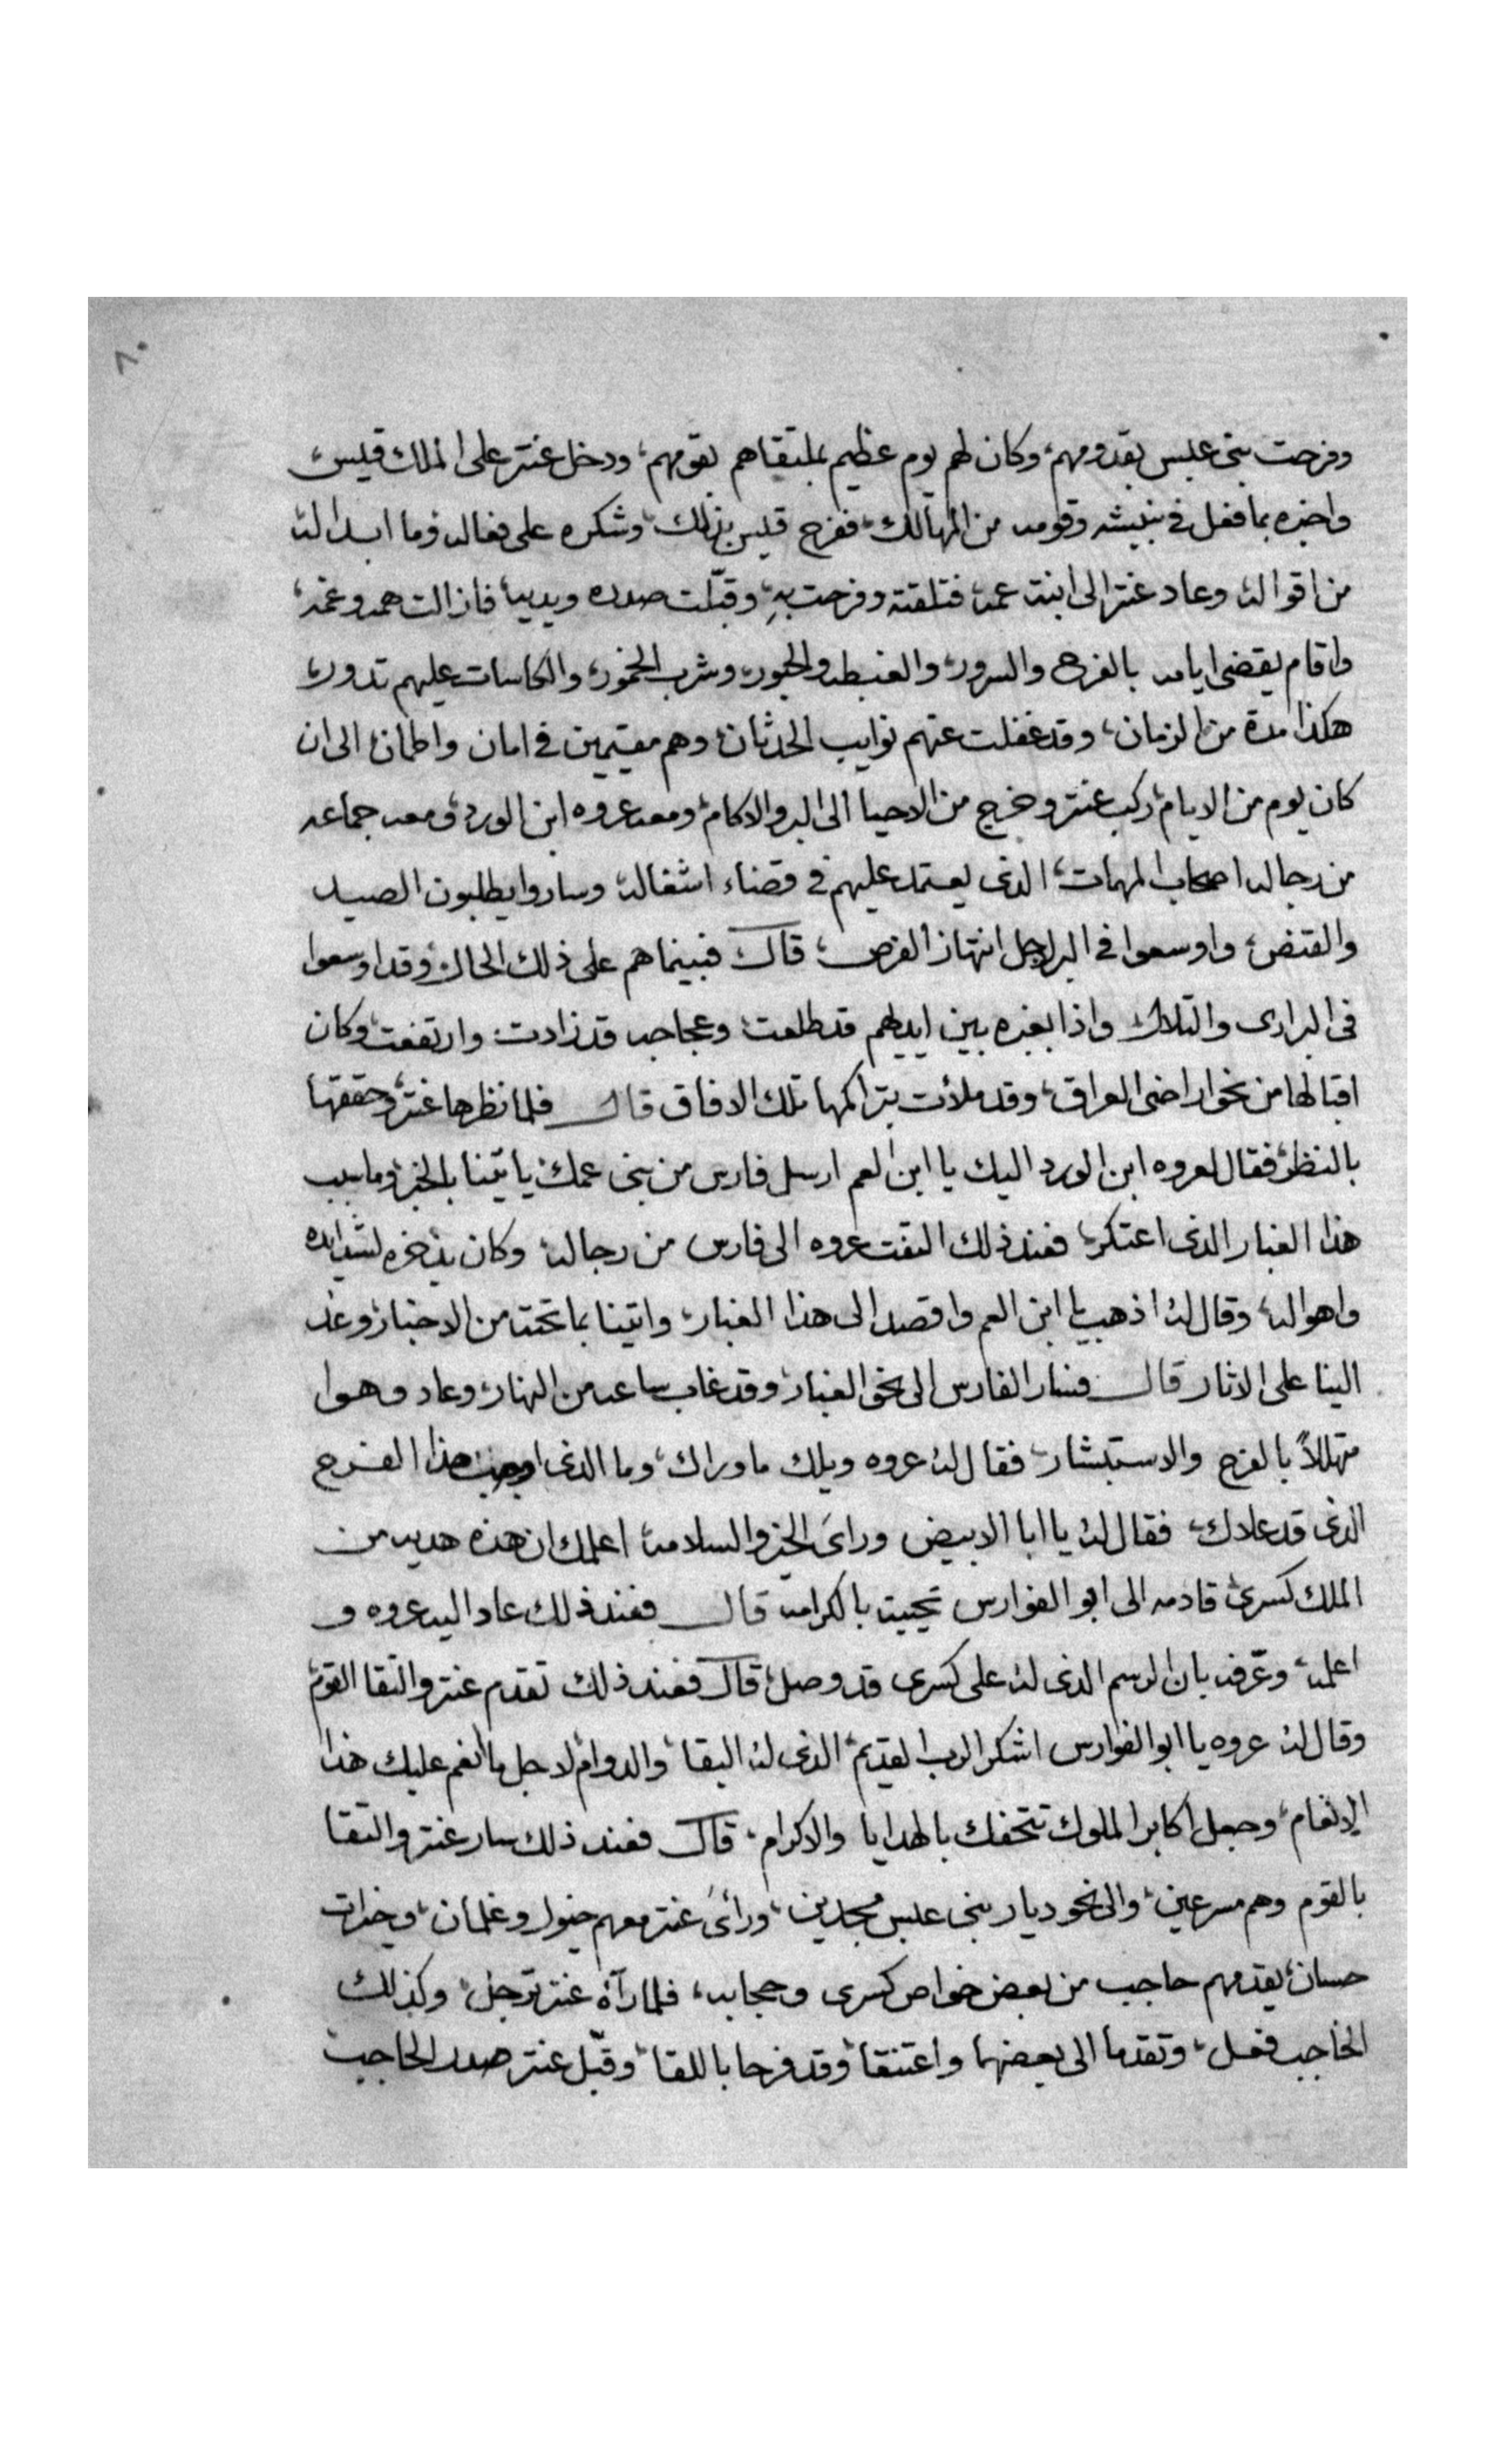 ٨٠
وفرحت بني عبس بقدومهم، وكان لهم يوم عظيم بملتقاهم بقومهم، ودخل عنتر على الملك قيس،
واخبره بما فعل في وقومه من المهالك، ففرح قيس بذلك، وشكره على فعاله، وما ابداله
من اقواله، وعاد عنتر الى ابنت عمه، فتلقته وفرحت بهِ، وقبّلت صدره ويديه، فازالت همه وغمه،
واقام يقضي ايامه بالفرح والسرور، والغبطه والحبور، وشرب الخمور، والكاسات عليهم تدور،
هكذا مدة من الزمان، وقد غفلت عنهم نوايب الحدثان، وهم مقيمين في امان واطمان، الى ان
كان يوم من الايام، ركب عنتر وخرج من الاحيا الى البر والاكام، ومعه عروه ابن الورد، ومعه جماعه
من رجاله اصحاب المهمات، الذي يعتمد عليهم في قضاء اشغاله، وساروا يطلبون الصيد
والقنص، واوسعوا في البر لاجل انتهاز الفرص، قال فبينما هم على ذلك الحال، وقد اوسعوا
في البراري والتلال، واذا بغبره بين ايديهم قد طلعت، وعجاجه قد زادت، وارتفعت، وكان
اقبالها من نحو اراضي العراق، وقد ملأت بتراكمها تلك الافاق قال فلما نظرها عنتر، وحققها
بالنظر، فقال لعروه ابن الورد اليك يا ابن العم ارسل فارس من بني عمك، ياتينا بالخبر، وما سبب
هذا الغبار الذي اعتكر، فعند ذلك التفت عروه الى فارس من رجاله، وكان يدخره لشدايده
واهواله، وقال له، اذهب يا ابن العم واقصد الى هذا الغبار، واتينا بما تحته من الاخبار، وعد
الينا على الاثار قال فسار الفارس الى نحو الغبار، وقد غاب ساعه من النهار، وعاد وهوا
متهللاً بالفرح والاستبشار، فقال له، عروه ويلك ما وراك، وما الذي اوجب هذا الفرح
الذي قد علاك، فقال له، يا ابا الابيض وراىَ الخير والسلامه، اعلمك ان هذه هديه من
الملك كسرى، قادمه الى ابو الفوارس تحييه بالكرامه قال فعند ذلك عاد اليه عروه و
اعلمه، وعرفه بان الرسم الذي له، على كسرى قد وصل، قال فعند ذلك تقدم عنتر والتقا القوم،
وقال له، عروه يا ابو الفوارس اشكر الرب القديم، الذي له البقا، والدوام، لاجل ما انعم عليك هذا
الإنعام، وجعل اكابر الملوك تتحفك بالهدايا والاكرام، قال فعند ذلك سار عنتر والتقا
بالقوم وهم مسرعين، والى نحو ديار بني عبس مجدين، ورأىَ عنتر معهم خيول وغلمان، وخيرات
حسان، يقدمهم حاجب من بعض خواص كسرى وحجابه، فلما رآه عنتر ترجل، وكذلك
الحاجب فعل، وتقدما الى بعضهما واعتنقا، وقد فرحا باللقا، وقبّل عنتر صدر الحاجب